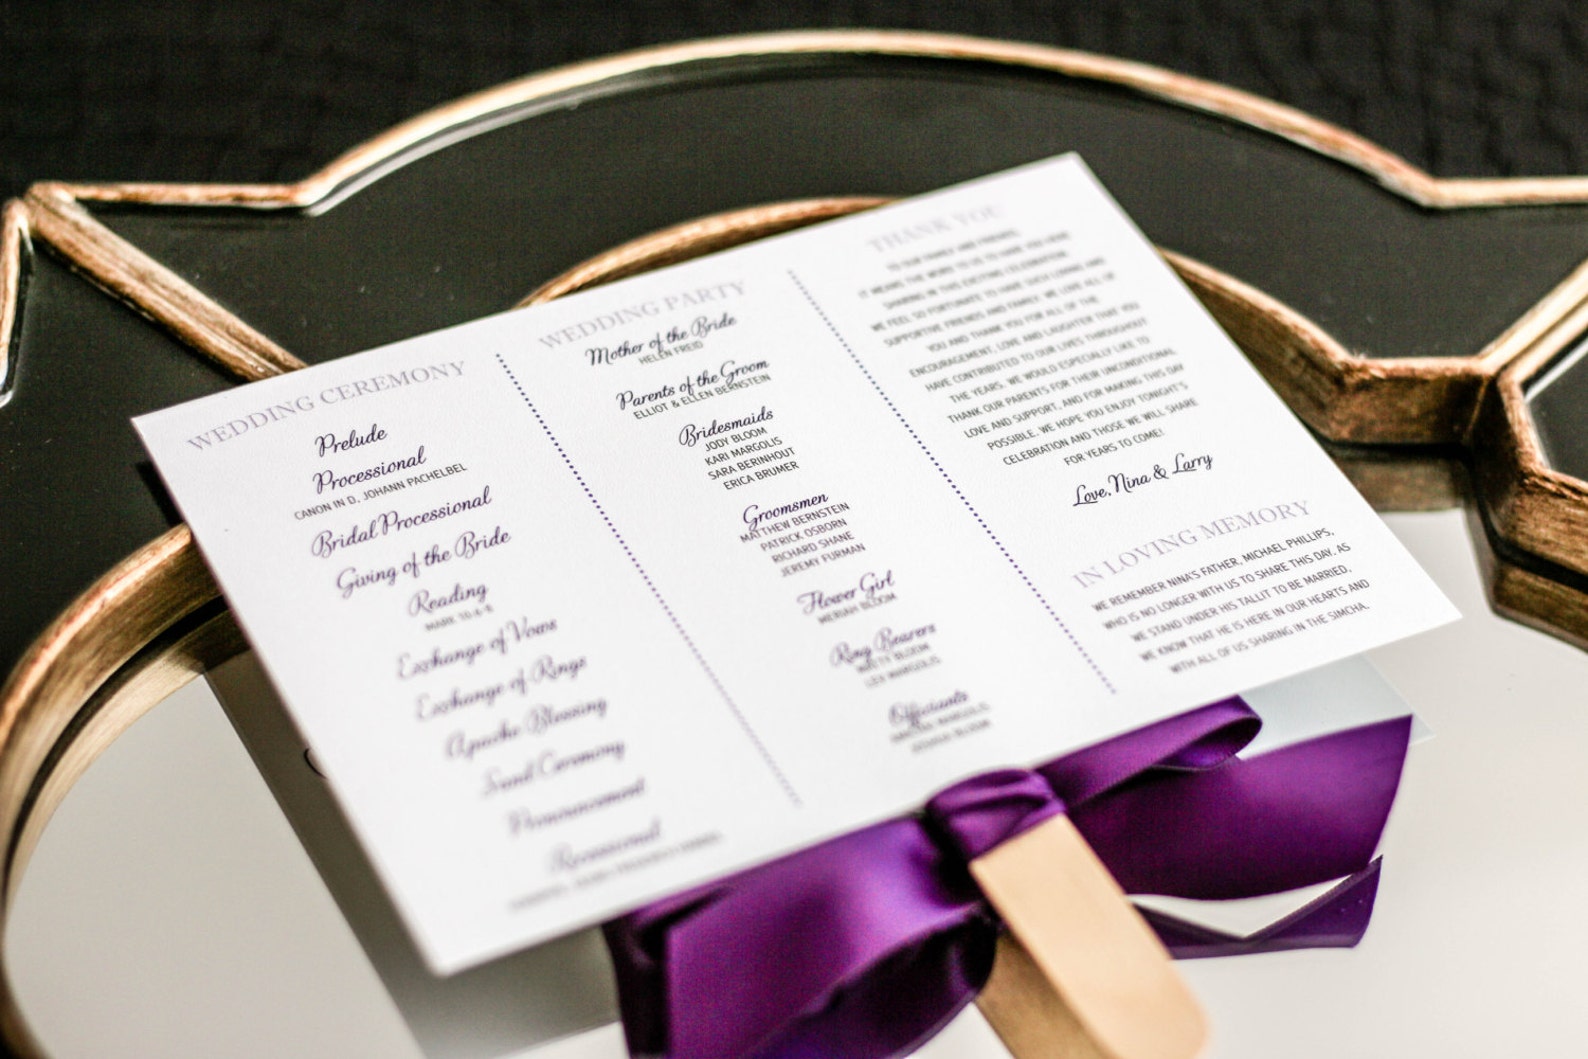 WEDDING CEREMONY
Prelude
Processional
CANON IN D, JOHANN PACHELBEL
Bridal Processional
Giving of the Bride
Reading
MARK 10:6-8
Exchange of Vows
Exchange of Rings
Apache Blessing
Sand Ceremony
Pronouncement
Recessional
WEDDING PARTY
Mother of the Bride
HELEN FREID
Parents of the Groom
ELLIOT & ELLEN BERNSTEIN
Bridesmaids
JODY BLOOM
KARI MARGOLIS
SARA BERINHOUT
ERICA BRUMER
Groomsmen
MATTHEW BERNSTEIN
PATRICK OSBORN
RICHARD SHANE
JEREMY FURMAN
Flower Girl
MERIAH BLOOM
Ring Bearers
MATTY BLOOM
LEX MARGOLIS
Officiants
MARGOLIS,
BLOOM
THANK YOU
TO OUR FAMILY AND FRIENDS,
IT MEANS THE WORLD TO US TO HAVE YOU HERE
SHARING IN THIS EXCITING CELEBRATION.
WE FEEL SO FORTUNATE TO HAVE SUCH LOVING AND
SUPPORTIVE FRIENDS AND FAMILY. WE LOVE ALL OF
YOU AND THANK YOU FOR ALL OF THE
ENCOURAGEMENT, LOVE AND LAUGHTER THAT YOU
HAVE CONTRIBUTED TO OUR LIVES THROUGHOUT
THE YEARS. WE WOULD ESPECIALLY LIKE TO
THANK OUR PARENTS FOR THEIR UNCONDITIONAL
LOVE AND SUPPORT, AND FOR MAKING THIS DAY
POSSIBLE. WE HOPE YOU ENJOY TONIGHT'S
CELEBRATION AND THOSE WE WILL SHARE
FOR YEARS TO COME!
Love, Nina & Larry
IN LOVING MEMORY
WE REMEMBER NINA'S FATHER, MICHAEL PHILLIPS,
WHO IS NO LONGER WITH US TO SHARE THIS DAY. AS
WE STAND UNDER HIS TALLIT TO BE MARRIED,
WE KNOW THAT HE IS HERE IN OUR HEARTS AND
WITH ALL OF US SHARING IN THE SIMCHA.